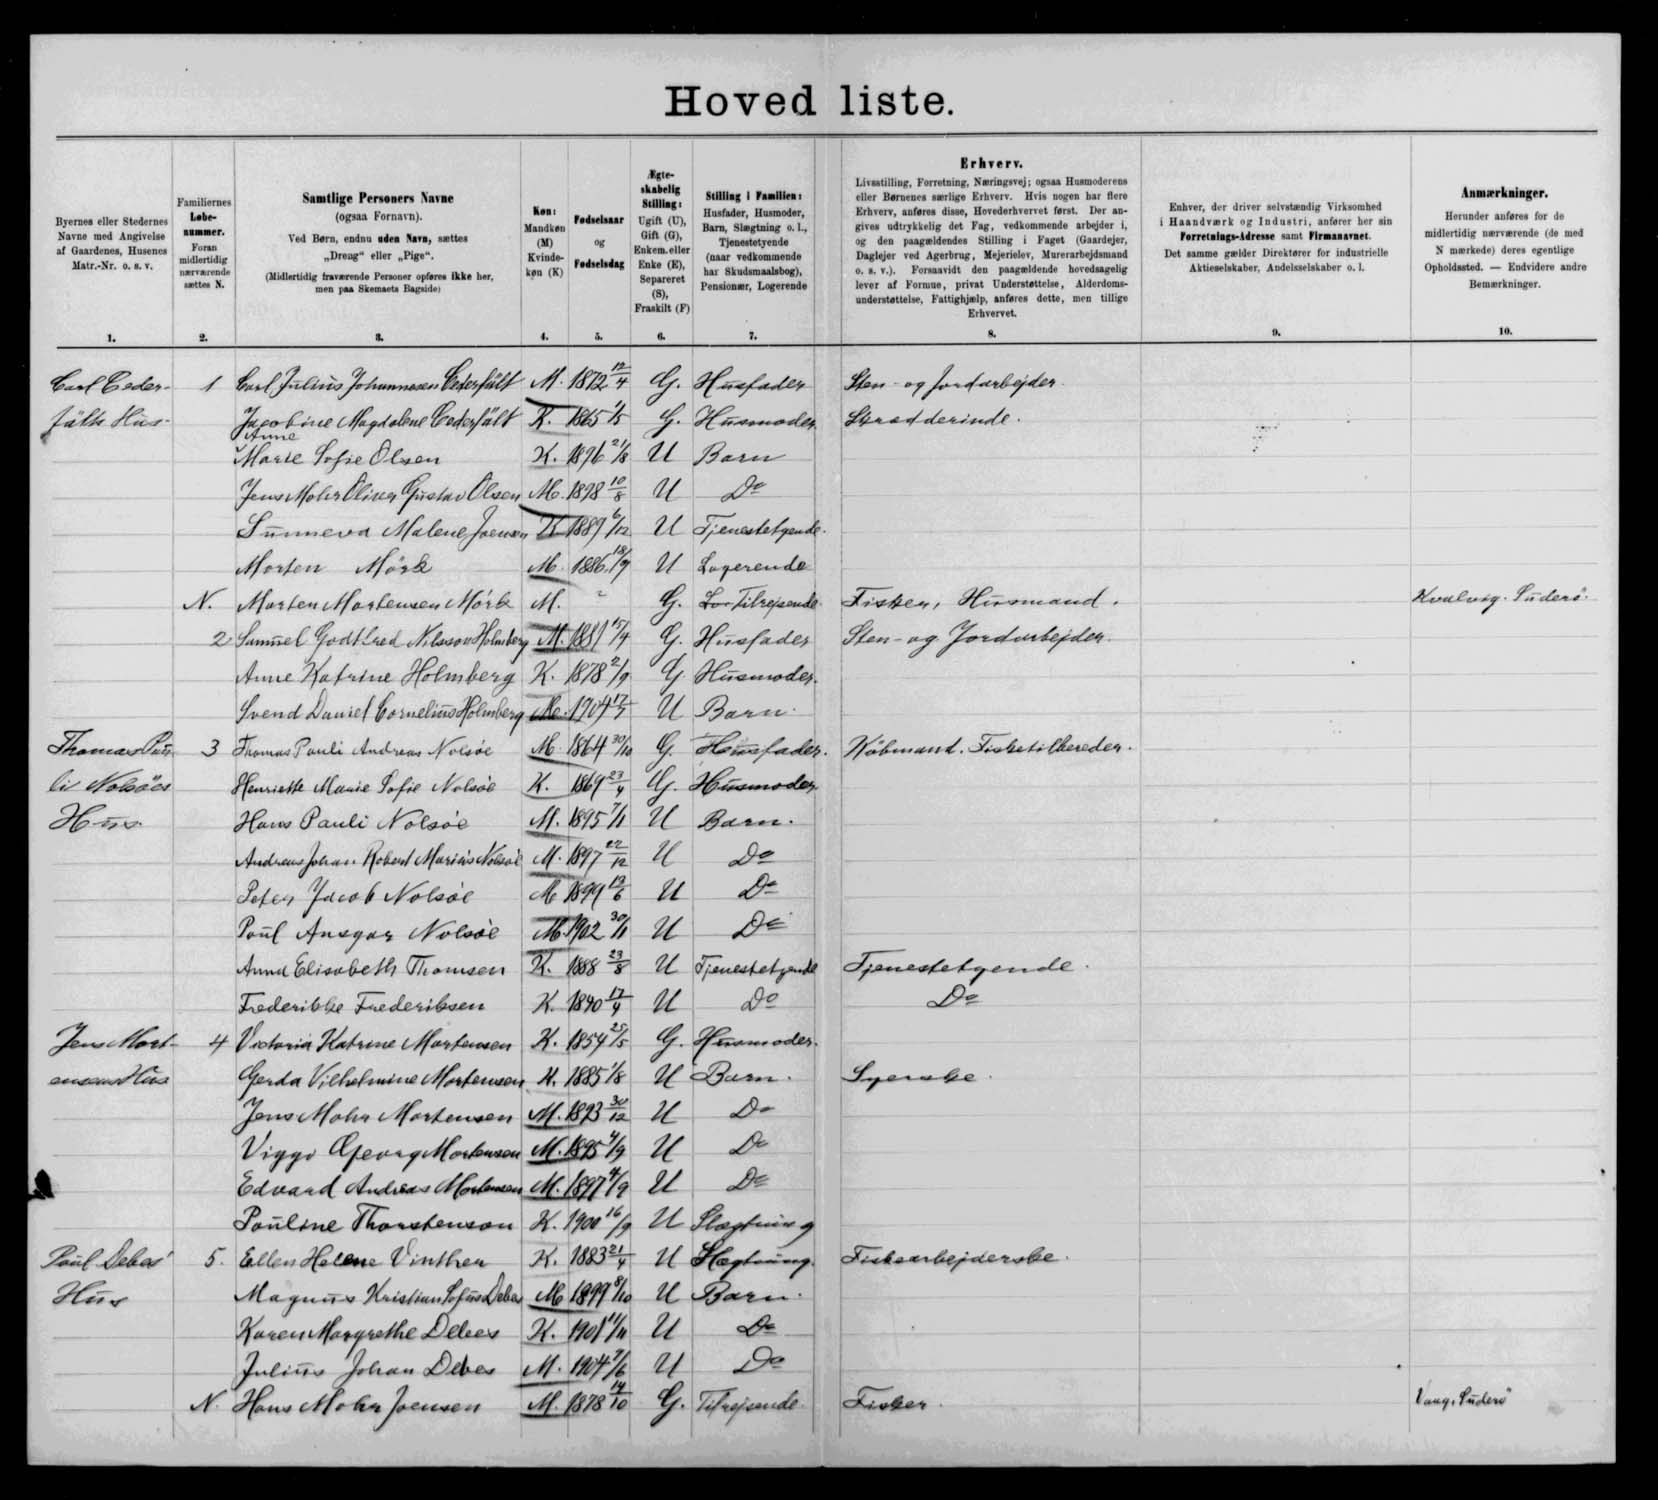 Hoved liste.
Byernes eller Stedernes Navne med Angivelse af Gaardenes, Husenes Matr.-Nr. o. s. v.
Familiernes Løbenummer. Foran midlertidig nærværende sættes N.
Samtlige Personers Navne (ogsaa Fornavn). Ved Børn, endnu uden Navn, sættes „Dreng" eller „Pige". (Midlertidig fraværende Personer opføres ikke her, men paa Skemaets Bagside)
Køn: Mandkøn (M) Kvindekøn (K)
Fødselsaar og Fødselsdag
Ægteskabelig Stilling: Ugift (U), Gift (G), Enkem. eller Enke (E), Separeret (S), Fraskilt (F)
Stilling i Familien: Husfader, Husmoder, Barn, Slægtning o. l., Tjenestetyende (naar vedkommende har Skudsmaalsbog), Pensionær, Logerende
Erhverv. Livsstilling, Forretning, Næringsvej; ogsaa Husmoderens eller Børnenes særlige Erhverv. Hvis nogen har flere Erhverv, anføres disse, Hovederhvervet først. Der angives udtrykkelig det Fag, vedkommende arbejder i, og den paagældendes Stilling i Faget (Gaardejer, Daglejer ved Agerbrug, Mejerielev, Murerarbejdsmand o. s. v.). Forsaavidt den paagældende hovedsagelig lever af Formue, privat Understøttelse, Alderdomsunderstøttelse, Fattighjælp, anføres dette, men tillige Erhvervet.
Enhver, der driver selvstændig Virksomhed i Haandværk og Industri, anfører her sin Forretnings-Adresse samt Firmanavnet. Det samme gælder Direktører for industrielle Aktieselskaber, Andelsselskaber o. l.
Anmærkninger. Herunder anføres for de midlertidig nærværende (de med N mærkede) deres egentlige Opholdssted. — Endvidere andre Bemærkninger.
1. 2. 3. 4. 5. 6. 7. 8. 9. 10.
Carl Ceder- 1 Carl Julius Johannesen Cederfält M. 1872 12/4 G. Husfader Sten- og Jordarbejder.
fälts Hus. Jacobine Magdalene Cederfält K. 1865 1/5 G. Husmoder. Skrædderinde.
Anne
Marie Sofie Olsen K. 1896 21/8 U Barn
Jens Mohr Oliver Gustav Olsen M. 1898 10/8 U Do
Sunneva Malene Joensen K. 1889 6/12 U Tjenestetyende.
Morten Mörk M. 1886 18/9 U Logerende
N. Morten Mortensen Mörk M. G. Tilrejsende. Fisker, Husmand. Kvalvig. Suderö.
2 Samuel Godtfred Nilsson Holmberg M. 1881 15/4 G. Husfader Sten- og Jordarbejder.
Anne Katrine Holmberg K. 1878 2/9 G Husmoder.
Svend Daniel Cornelius Holmberg M. 1904 17/7 U Barn.
Thomas Pau 3 Thomas Pauli Andreas Nolsöe M. 1864 30/10 G. Husfader. Köbmand. Fisketilbereder.
li Nolsöes Henriette Marie Sofie Nolsöe K. 1869 23/4 G. Husmoder
Hus Hans Pauli Nolsöe M. 1895 7/1 U Barn.
Andreas Johan Robert Marius Nolsöe M. 1897 22/12 U Do
Peter Jacob Nolsöe M 1899 13/6 U Do
Poul Ansgar Nolsöe M. 1902 30/11 U Do
Anna Elisabeth Thomsen K. 1888 23/8 U Tjenestetyende Tjenestetyende.
Frederikke Frederiksen K. 1890 17/4 U Do Do
Jens Mort- 4 Victoria Katrine Mortensen K. 1854 25/5 G. Husmoder.
ensens Hus Gerda Vilhelmine Mortensen K. 1885 1/8 U Barn. Syerske.
Jens Mohr Mortensen M. 1893 30/12 U Do
Viggo Georg Mortensen M. 1895 4/9 U Do
Edvard Andreas Mortensen M. 1897 4/9 U Do
Pouline Thorstenson K. 1900 16/9 U Slægtning
Poul Debes' 5. Ellen Helene Vinther K. 1883 21/4 U Slægtning. Fiskearbejderske.
Hus Magnus Kristian Sofus Debes M 1899 8/10 U Barn.
Karen Margrethe Debes K. 1901 11/11 U Do
Julius Johan Debes M. 1904 7/6 U Do
N. Hans Mohr Joensen M. 1878 14/10 G. Tilrejsende. Fisker. Vaag, Suderö